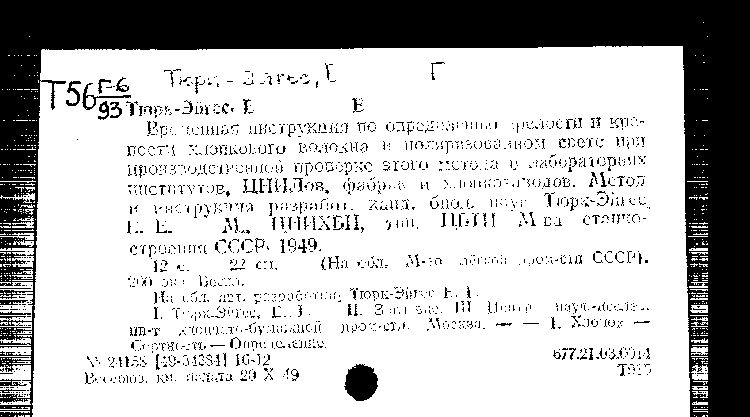 Тюрк-Эйгес, Е Г
Т56 Г-6
93
Тюрк-Эйгес, Е
Временная инструкция по определению зрелости и кре-
пости хлопкового волокна в поляризованном свете при
производственной проверке этого метода в лабораториях
институтов, ЦНИЛов, фабрик и хлопкозаводов. Метод
и инструкция разработ. канд. биол. наук Тюрк-Эйгес,
М., ЦНИХБИ, тип. ЦБТИ М-ва станко-
строения СССР, 1949.
12 с. 22 см. (На обл. М-во легкой пром-сти СССР).
200 экз. Беспл.
На обл. авт. разработки: Тюрк-Эйгес Е. Г.
I. Тюрк-Эйгес, Е. Г. II. III. Центр. науч.-исслед.
ин-т хлопчато-бумажной пром-сти. Москва. — — 1. Хлопок —
Сортность — Определение.
№ 24158 [49-54384] 16-12 677.21.03.0014
Всесоюз. кн. палата 29 X 49 Т915